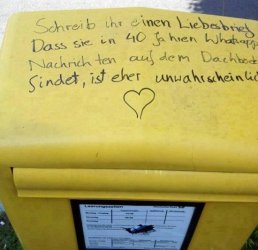 Schreib ihr einen Liebesbrief
Dass sie in 40 Jahren Whatsapp
Nachrichten auf dem Dachbod
findet, ist eher unwahrscheinlic
Leerungszeiten